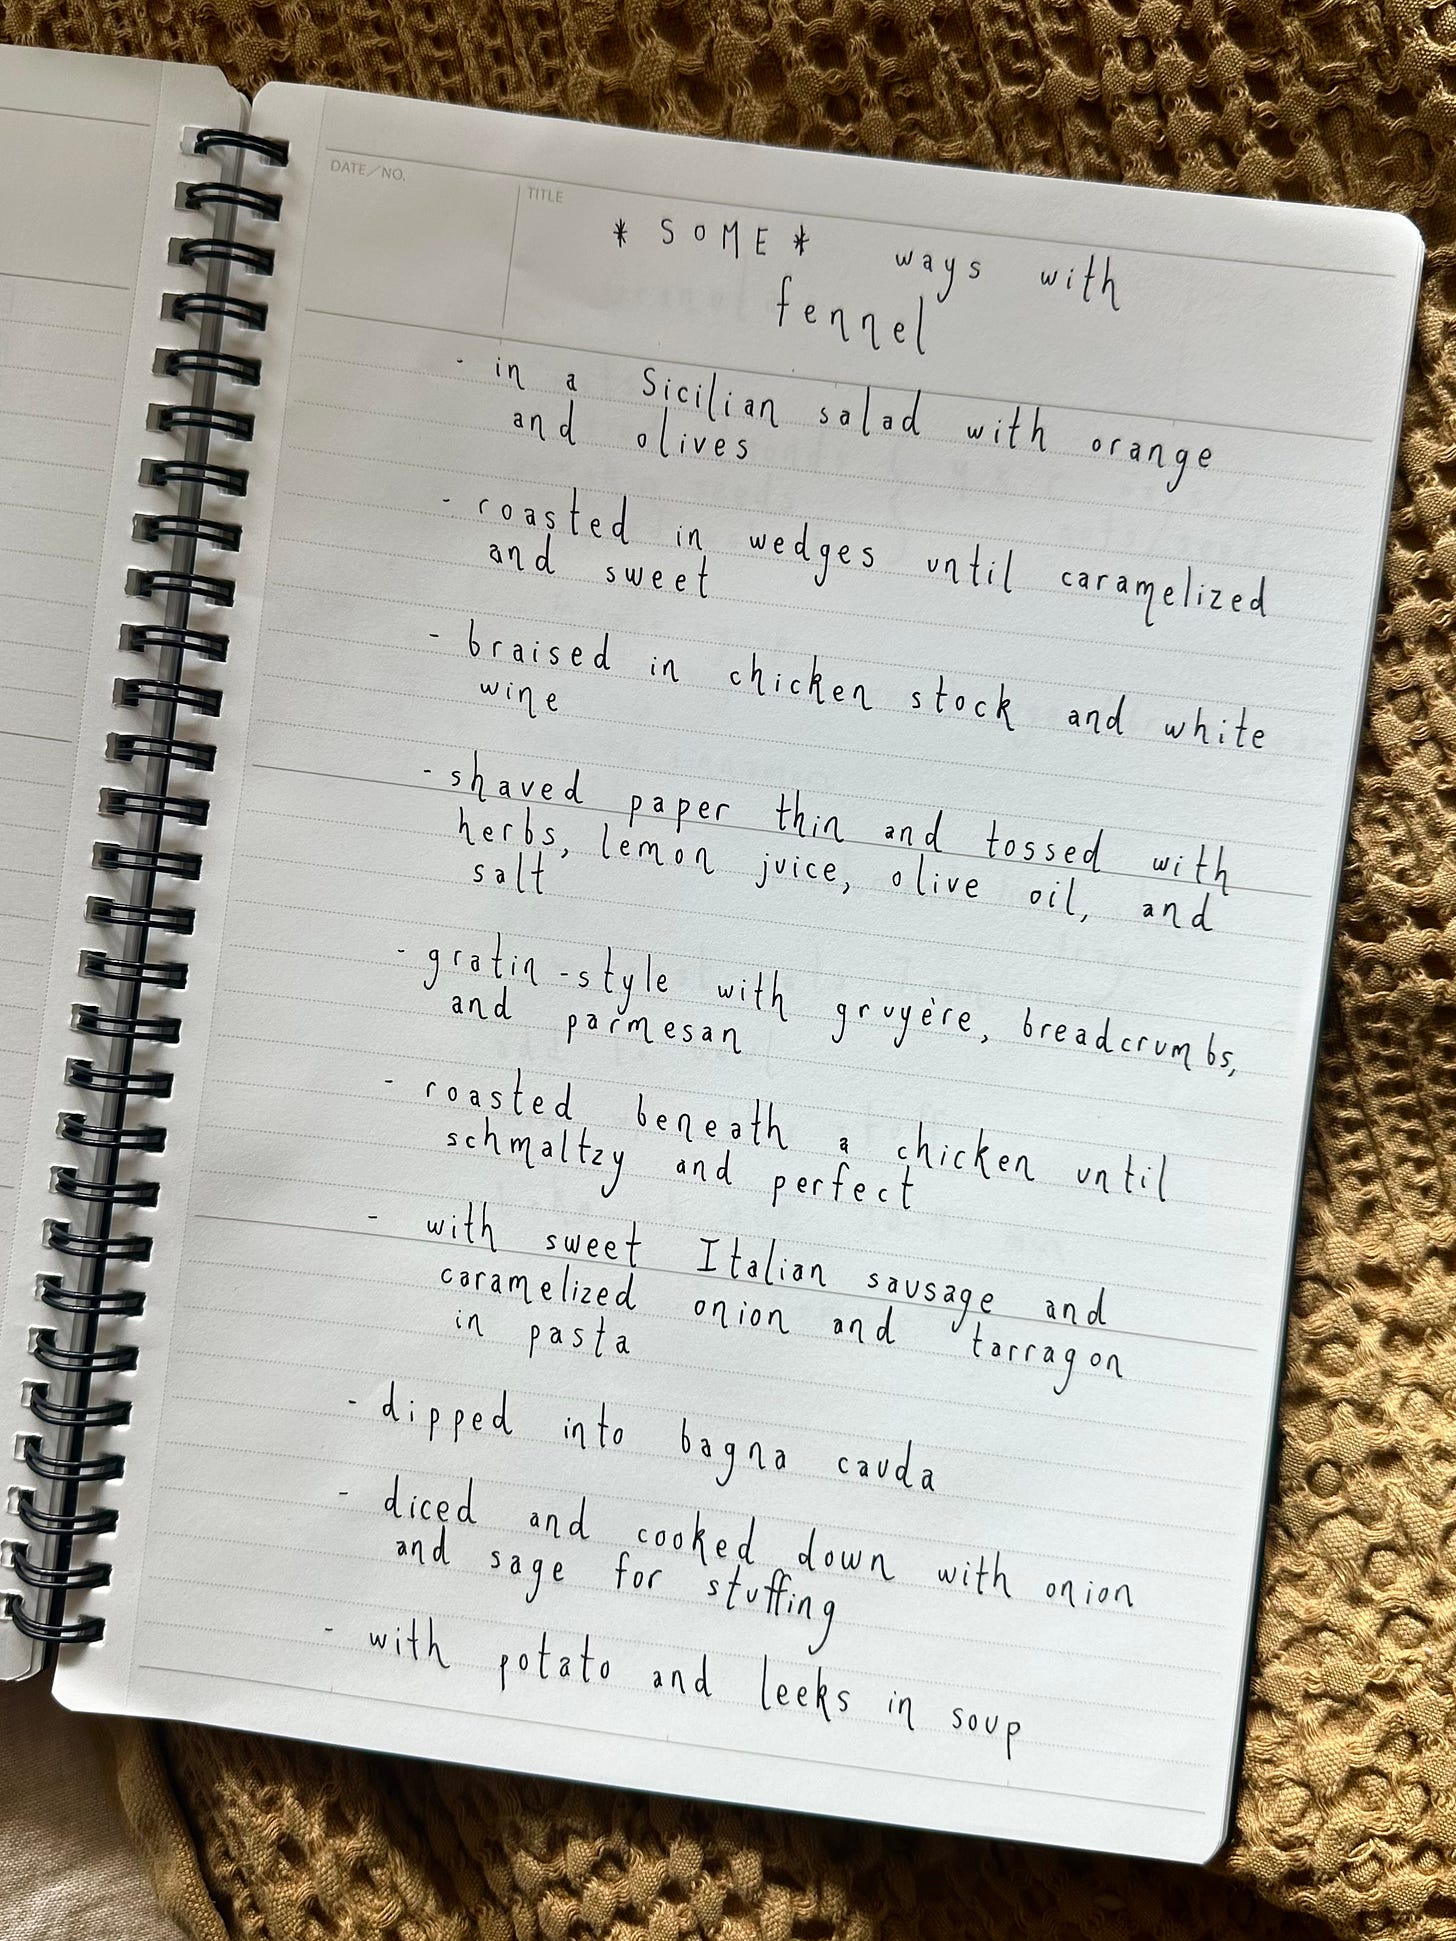 DATE/NO.
TITLE
* SOME * ways with
fennel
- in a Sicilian salad with orange
and olives
- roasted in wedges until caramelized
and sweet
- braised in chicken stock and white
wine
- shaved paper thin and tossed with
herbs, lemon juice, olive oil, and
salt
- gratin-style with gruyère, breadcrumbs,
and parmesan
- roasted beneath a chicken until
schmaltzy and perfect
- with sweet Italian sausage and
caramelized onion and tarragon
in pasta
- dipped into bagna cauda
- diced and cooked down with onion
and sage for stuffing
- with potato and leeks in soup